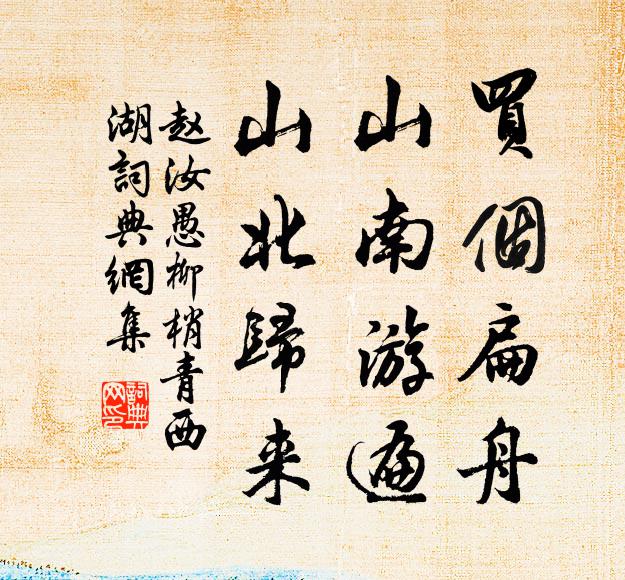 買個扁舟
山南游遍
山北歸来
赵汝愚柳梢青西
湖詞典網集
詞典
网印